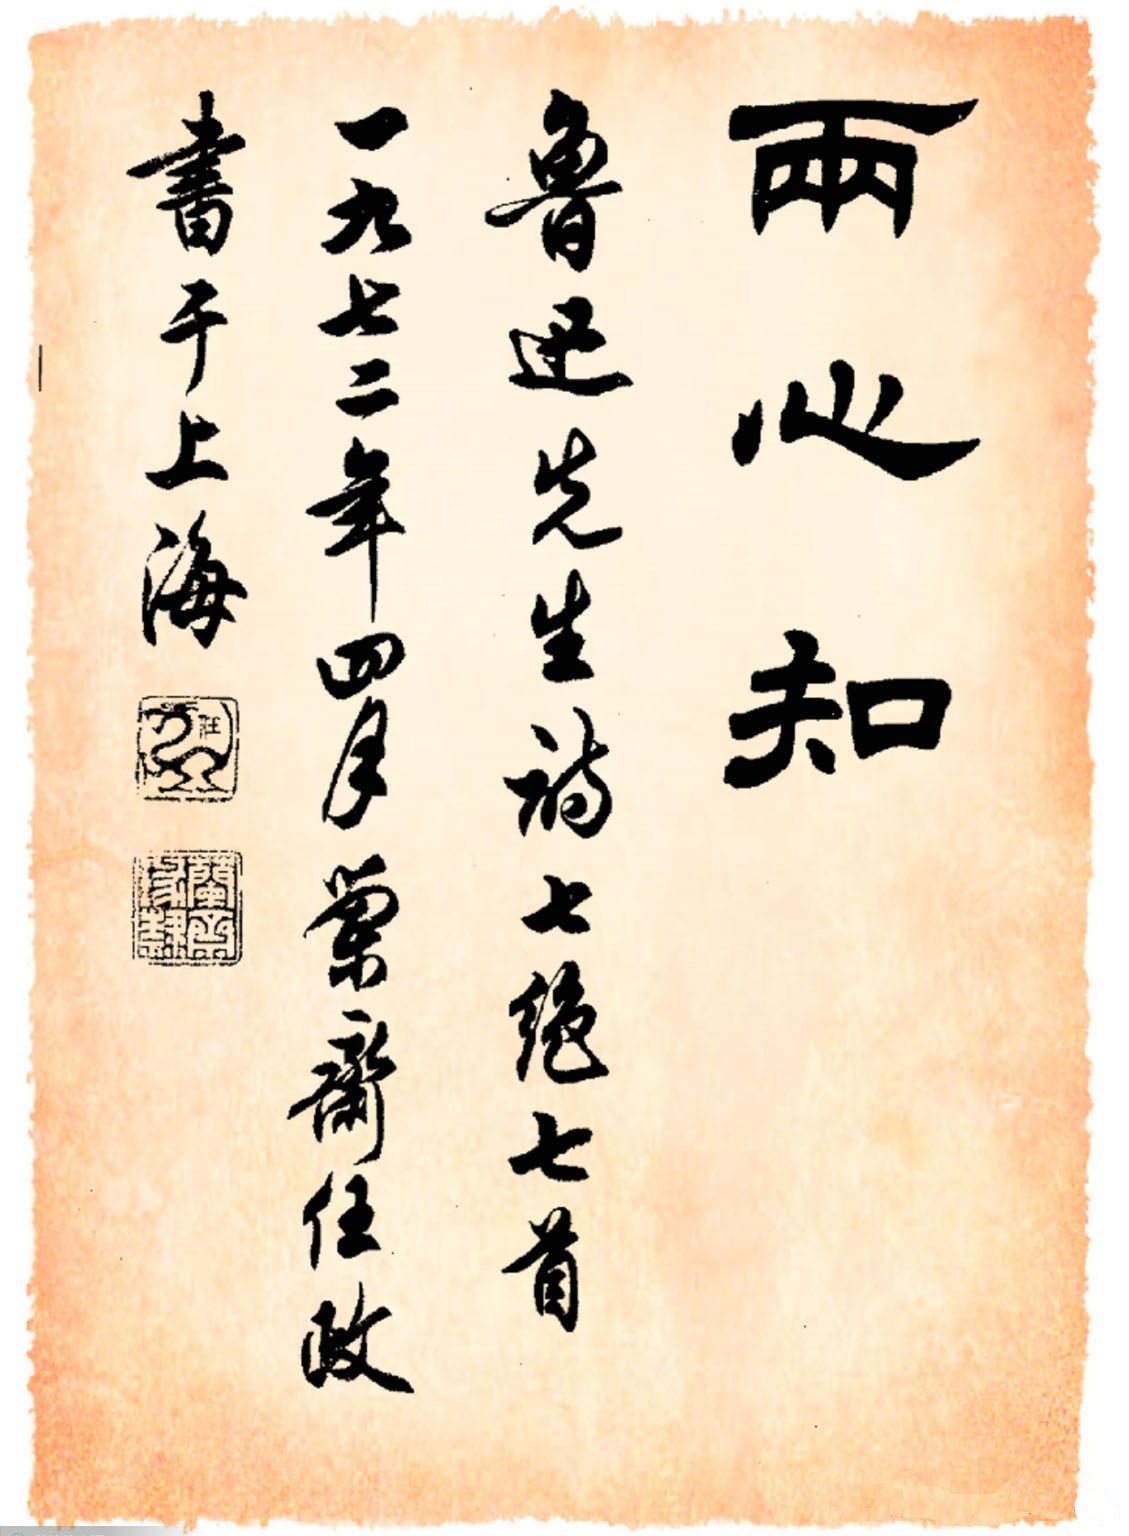 兩心知
魯迅先生詩七絕七首
一九七二年四月蘭齋任政
書于上海